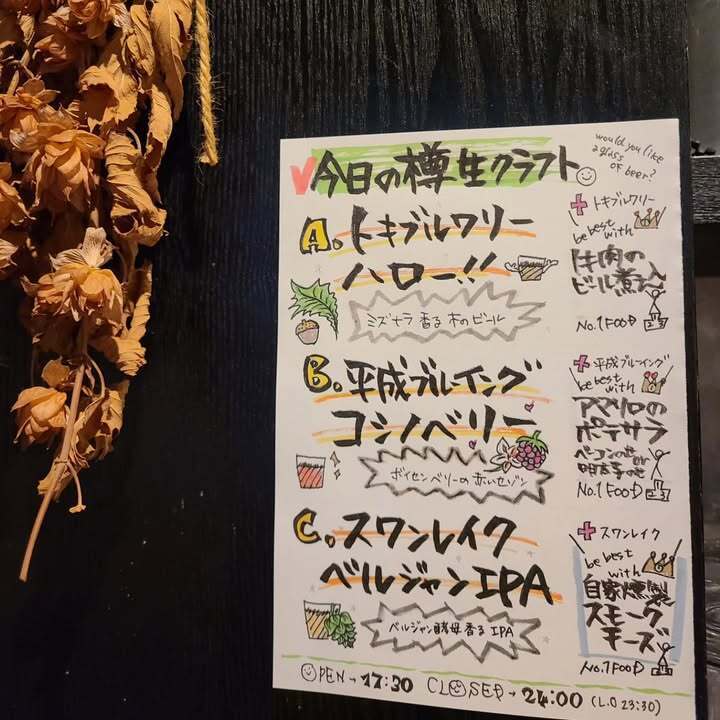 今日の樽生クラフト
would you like
a glass
of beer?
A. トキブルワリー
ハロー!!
ミズナラ香る木のビール
トキブルワリー
be best
with
牛肉の
ビール煮込
No.1 FOOD
B. 平成ブルーイング
コシノベリー
ボイセンベリーの赤いセゾン
平成ブルーイング
be best
with
アマリロの
ポテサラ
ベーコンのせ or
明太子のせ
No.1 FOOD
C. スワンレイク
ベルジャンIPA
ベルジャン酵母香るIPA
スワンレイク
be best
with
自家燻製
スモーク
チーズ
No.1 FOOD
OPEN→17:30 CLOSED→24:00 (L.O 23:30)